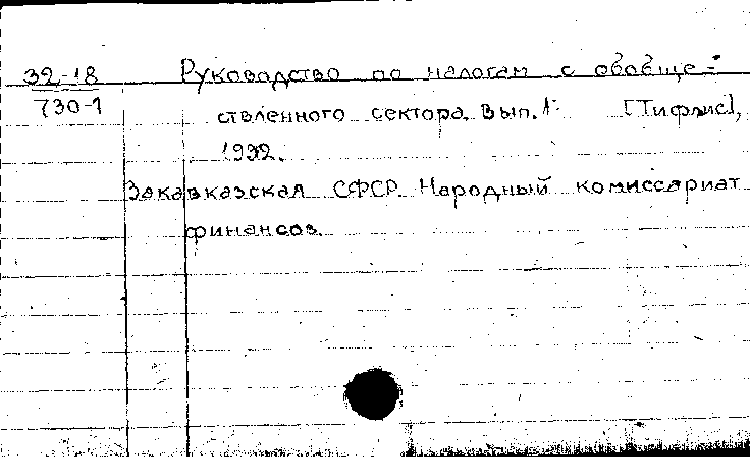 32-18 Руководство по налогам с обобще-
730-1 ствленного сектора. Вып. 1. [Тифлис],
1932.
Закавказская СФСР. Народный комиссариат
финансов.